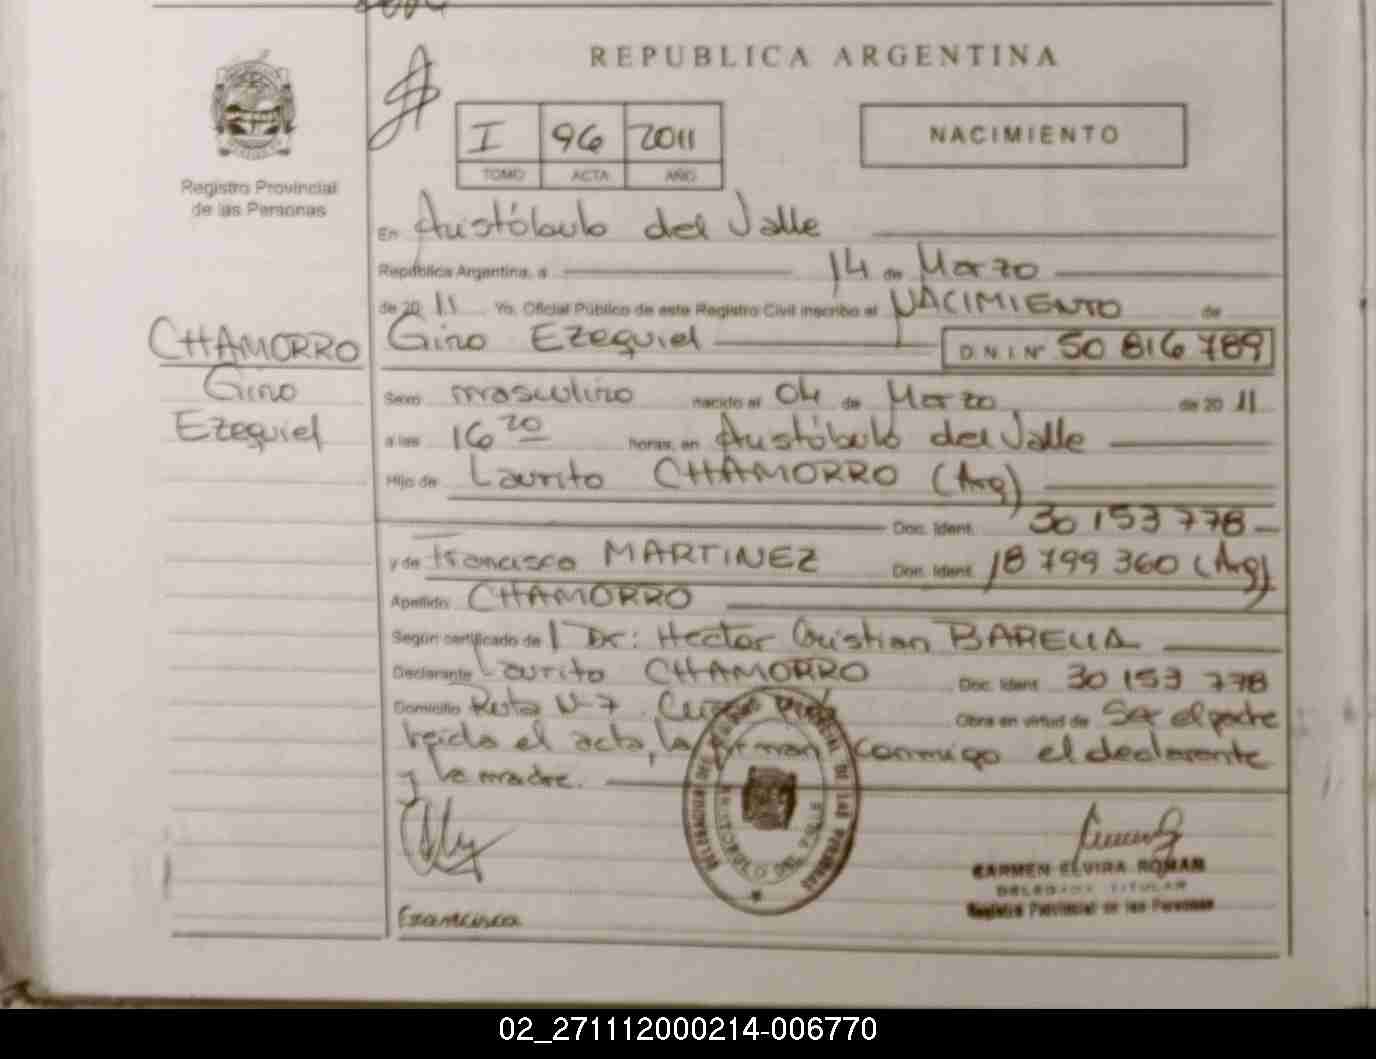 REPUBLICA ARGENTINA
I 96 2011
TOMO ACTA AÑO
NACIMIENTO
Registro Provincial
de las Personas
CHAMORRO
Gino
Ezequiel
En Aristóbulo del Valle
República Argentina, a 14 de Marzo
de 20 11 Yo, Oficial Público de este Registro Civil inscribo el NACIMIENTO de
Gino Ezequiel D N I Nº 50 816 789
Sexo masculino nacido el 04 de Marzo de 20 11
a las 16 20 horas, en Aristóbulo del Valle
Hijo de Laurito CHAMORRO (Arg)
Doc. Ident. 30 153 778
y de Francisca MARTINEZ Doc. Ident. 18 799 360 (Arg)
Apellido CHAMORRO
Según certificado de Dr: Hector Cristian BARELLA
Declarante Laurito CHAMORRO Doc. Ident 30 153 778
Domicilio Ruta Nº 7 Obra en virtud de Ser el padre
leida el acta, la firman conmigo el declarante
y la madre.
Francisca
CARMEN ELVIRA ROMAN
DELEGADA TITULAR
Registro Provincial de las Personas
02_271112000214-006770